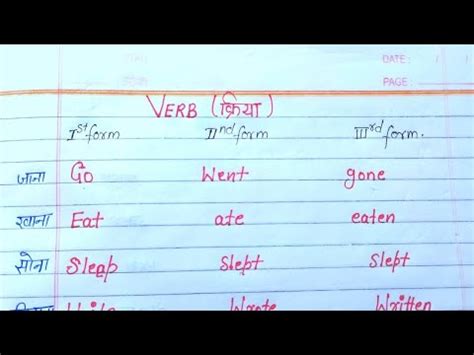 DATE: / /
PAGE:
VERB (क्रिया)
Ist form IInd form IIIrd form.
जाना Go Went gone
खाना Eat ate eaten
सोना Sleep Slept Slept
Wrote Written